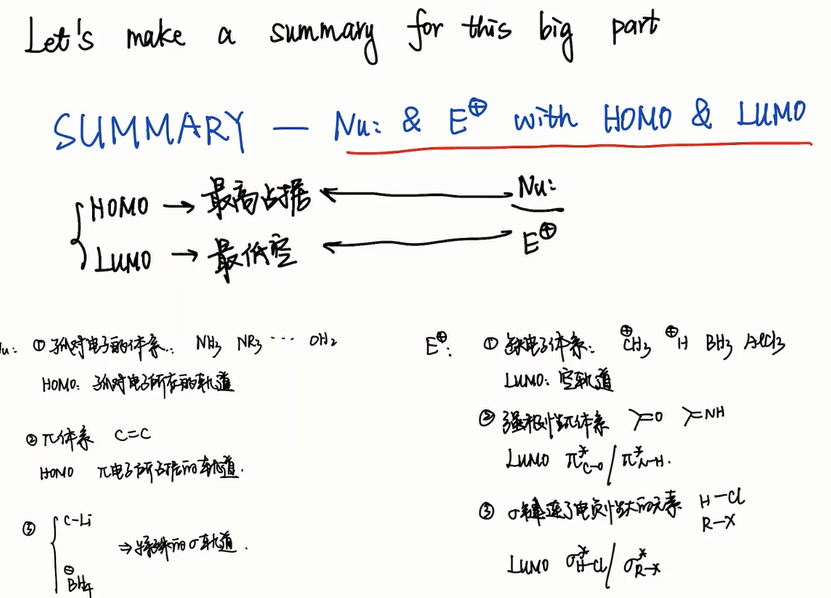 Let's make a summary for this big part
SUMMARY — Nu: & E⊕ with HOMO & LUMO
HOMO → 最高占据 ↔ Nu:
LUMO → 最低空 ↔ E⊕
Nu: ① 孤对电子的体系: NH3 NR3 ··· OH2
HOMO: 孤对电子所在的轨道
② π体系 C=C
HOMO π电子所占据的轨道.
③ C-Li
⊖BH4
⇒ 特殊的σ轨道.
E⊕: ① 缺电子体系: ⊕CH3 ⊕H BH3 AlCl3
LUMO: 空轨道
② 强极性π体系 =O =NH
LUMO π*C=O / π*N-H.
③ σ键连了电负性大的元素 H-Cl
R-X
LUMO σ*H-Cl / σ*R-X